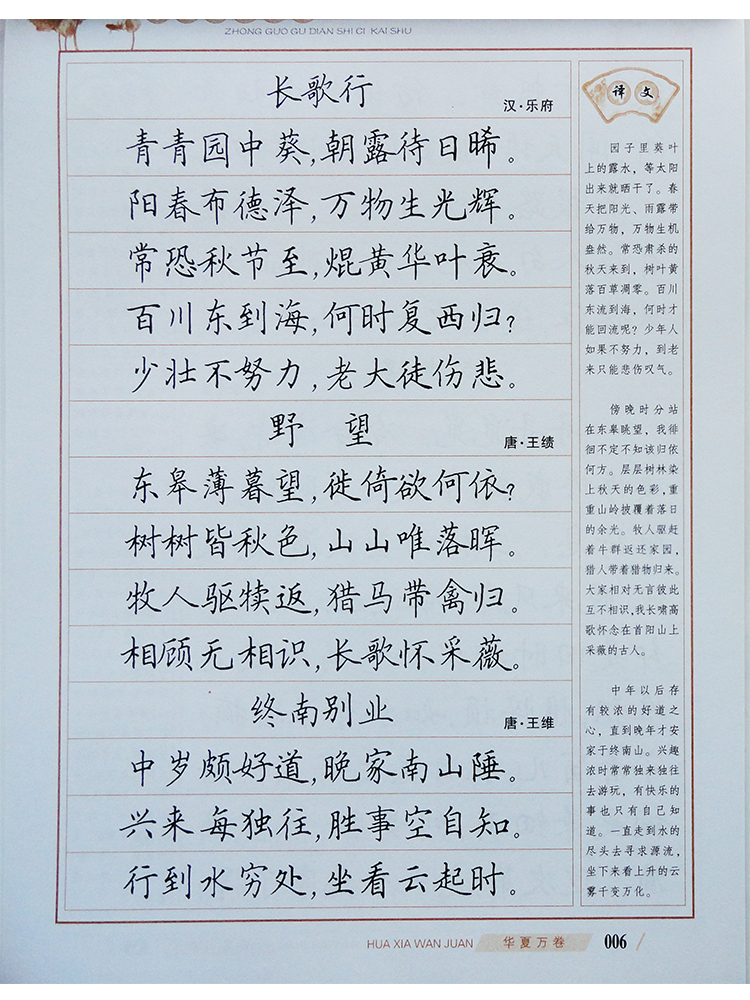 ZHONG GUO GU DIAN SHI CI KAI SHU
长歌行
汉·乐府
青青园中葵,朝露待日晞。
阳春布德泽,万物生光辉。
常恐秋节至,焜黄华叶衰。
百川东到海,何时复西归?
少壮不努力,老大徒伤悲。
野望
唐·王绩
东皋薄暮望,徙倚欲何依?
树树皆秋色,山山唯落晖。
牧人驱犊返,猎马带禽归。
相顾无相识,长歌怀采薇。
终南别业
唐·王维
中岁颇好道,晚家南山陲。
兴来每独往,胜事空自知。
行到水穷处,坐看云起时。
译文
园子里葵叶
上的露水，等太阳
出来就晒干了。春
天把阳光、雨露带
给万物，万物生机
盎然。常恐肃杀的
秋天来到，树叶黄
落百草凋零。百川
东流到海，何时才
能回流呢？少年人
如果不努力，到老
来只能悲伤叹气。
傍晚时分站
在东皋眺望，我徘
徊不定不知该归依
何方。层层树林染
上秋天的色彩，重
重山岭披覆着落日
的余光。牧人驱赶
着牛群返还家园，
猎人带着猎物归来。
大家相对无言彼此
互不相识，我长啸高
歌怀念在首阳山上
采薇的古人。
中年以后存
有较浓的好道之
心，直到晚年才安
家于终南山。兴趣
浓时常常独来独往
去游玩，有快乐的
事也只有自己知
道。一直走到水的
尽头去寻求源流，
坐下来看上升的云
雾千变万化。
HUA XIA WAN JUAN
华夏万卷
006